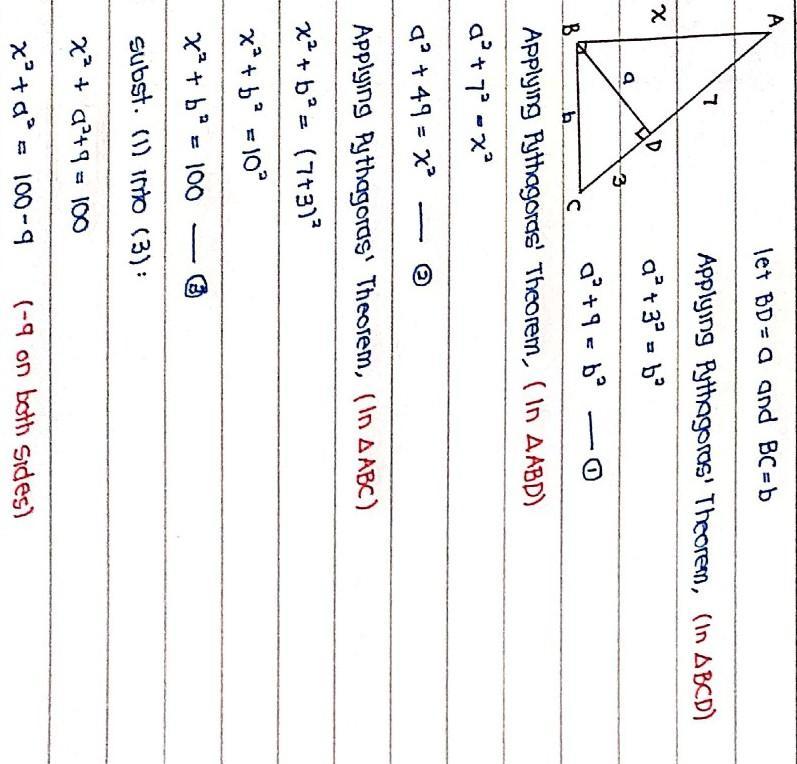 let BD = a and BC = b
Applying Pythagoras' Theorem, (In △BCD)
a² + 3² = b²
a² + 9 = b² — ①
A
x
7
a
D
3
B
b
C
Applying Pythagoras' Theorem, (In △ABD)
a² + 7² = x²
a² + 49 = x² — ②
Applying Pythagoras' Theorem, (In △ABC)
x² + b² = (7+3)²
x² + b² = 10²
x² + b² = 100 — ③
subst. (1) into (3):
x² + a² + 9 = 100
x² + a² = 100 - 9 (-9 on both sides)